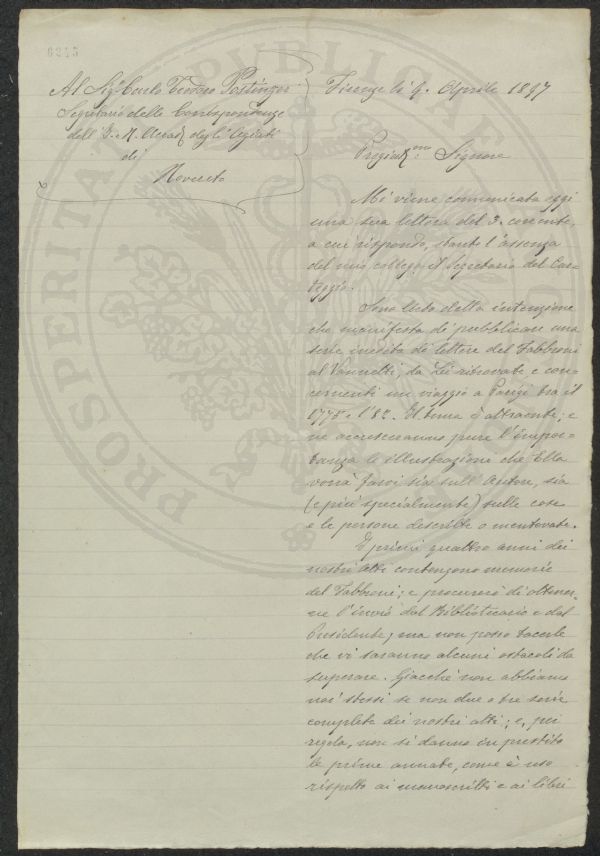 6215
Al Sig.r Carlo Teodoro Postinger
Segretario delle Corrispondenze
dell'I. R. Accad. degli Agiati
di
Rovereto
Firenze li 9. Aprile 1897
Pregiat.mo Signore
Mi viene comunicata oggi
una sua lettera del 3. corrente,
a cui rispondo, stante l'assenza
del mio collega il Segretario del Car-
teggio.
Sono lieto della intenzione
che manifesta di pubblicare una
serie inedita di lettere del Fabbroni
al da Lei ritrovate e con-
cernenti un viaggio a Parigi tra il
1778 e l'82. Il tema è attraente; e
ne accresceranno pure l'impor-
tanza le illustrazioni che Ella
vorrà farvi sia sull'Autore, sia
(e più specialmente) sulle cose
e le persone descritte o mentovate.
I primi quattro anni dei
nostri atti contengono memorie
del Fabbroni; e procurerò di ottener-
ne l'invio dal Bibliotecario e dal
Presidente; ma non posso tacerle
che vi saranno alcuni ostacoli da
superare. Giacchè non abbiamo
noi stessi se non due o tre serie
complete dei nostri atti; e, per
regola, non si danno in prestito
le prime annate, come è uso
rispetto ai manoscritti e ai libri
PROSPERITA PUBLICAE